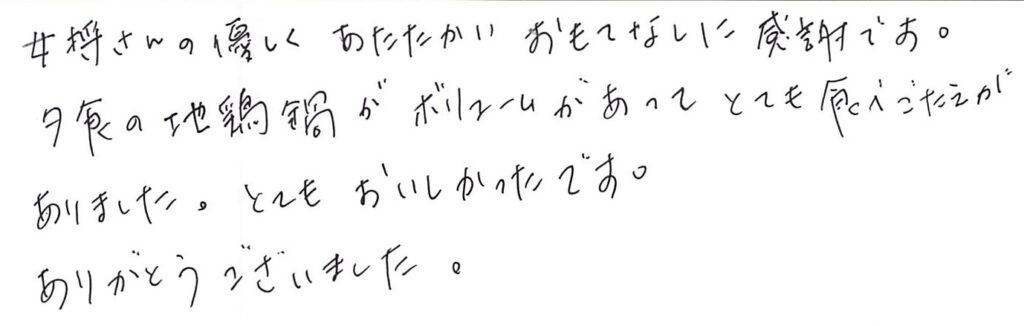 女将さんの優しく あたたかい おもてなしに 感謝です。
夕食の 地鶏鍋が ボリュームがあって とても 食べごたえが
ありました。とても おいしかったです。
ありがとうございました。